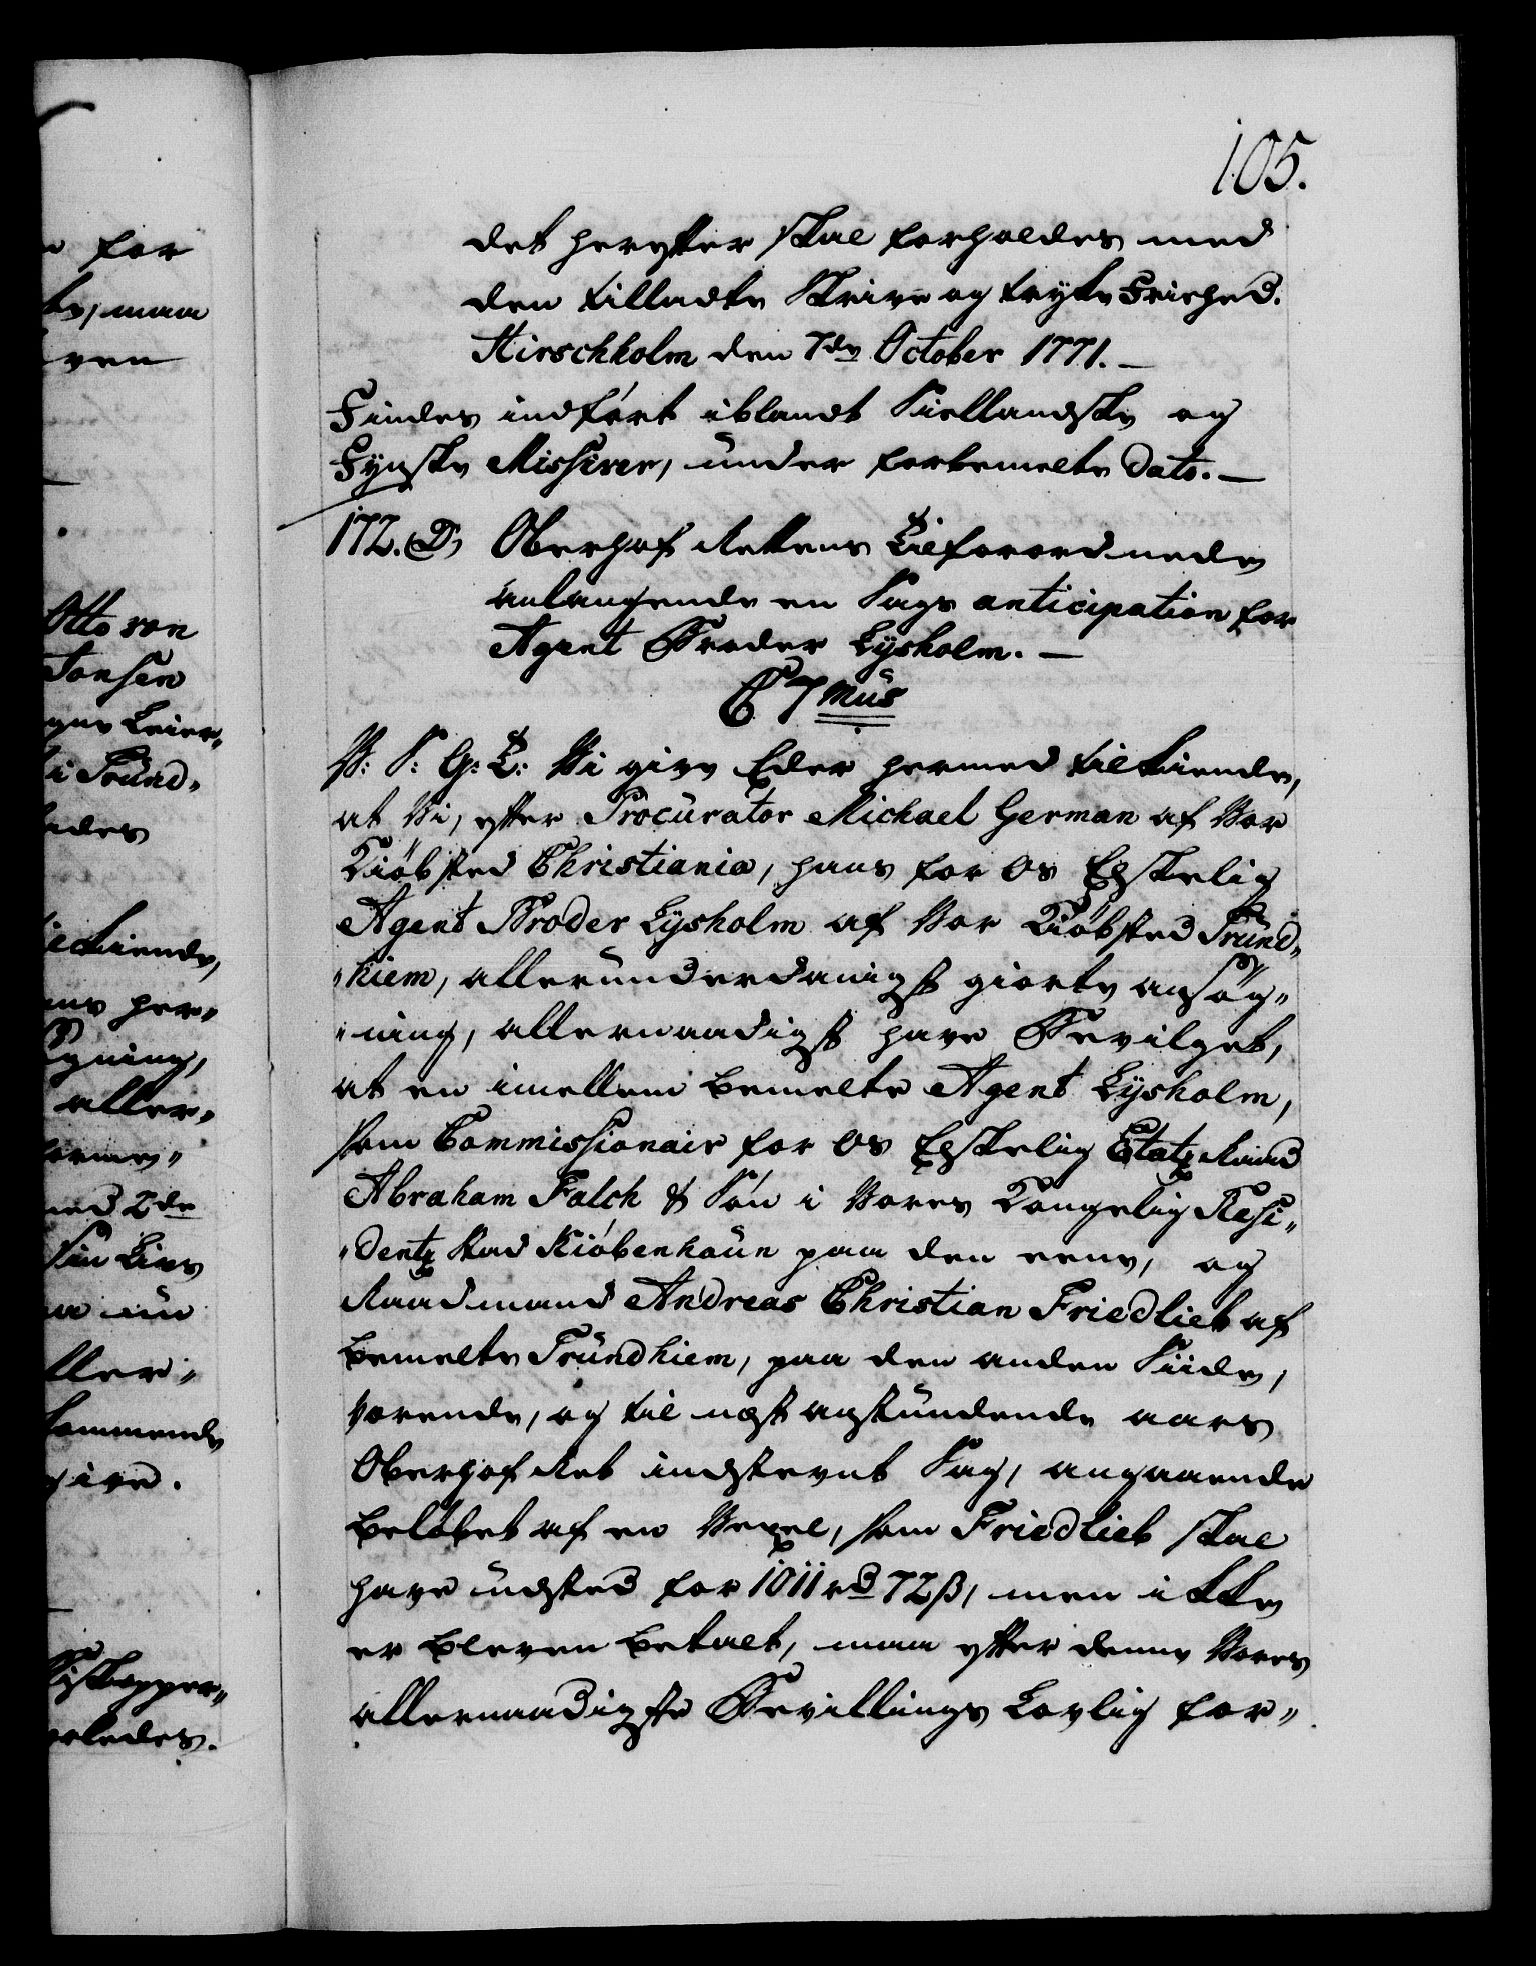 105.
det herefter skal forholdes med
den tilladte Skrive og trykke Friehed.
Hirschholm den 7de October 1771.—
Findes indført iblandt Siellandske og
Fynske Missiver, under forbemelte Dato.—
172. D, Oberhof Rettens Tilforordnede
anlangende en Sags anticipation for
Agent Broder Lysholm.—
C7mus
V: S: G: T: Vi give Eder hermed tilkiende,
at Vi, efter Procurator Michael German af Vor
Kiøbsted Christiania, paa for Os Elskelig
Agent Broder Lysholm af Vor Kiøbsted Trund„
„hiem, allerunderdanigst giorte ansøg„
„ning, allernaadigst have Bevilget,
at en imellem bemelte Agent Lysholm,
som Commissionair for Os Elskelig Etatz Raad
Abraham Falch & Søn i Vores Kongelig Resi„
„dentz Stad Kiøbenhaun paa den eene, og
Raadmand Andreas Christian Friedlieb af
bemelte Trundhiem, paa den anden Siide,
værende, og til nest anstundende aars
Oberhof Ret indstevnt Sag, angaaende
beløbet af en Vexel, som Friedlieb skal
have udsted for 1011 rd 72 ß, men ikke
er bleven betalt, maa efter denne Vores
allernaadigste Bevillings Lovlig for„
n for
te, maa
even
Otto von
Jonsen
gns Leier„
i Trund„
ades
lkiende,
ens her„
gning,
aller„
med 2de
Sin Livs
a nu
ller„
kommende
give.
Fiskepper„
erledes.